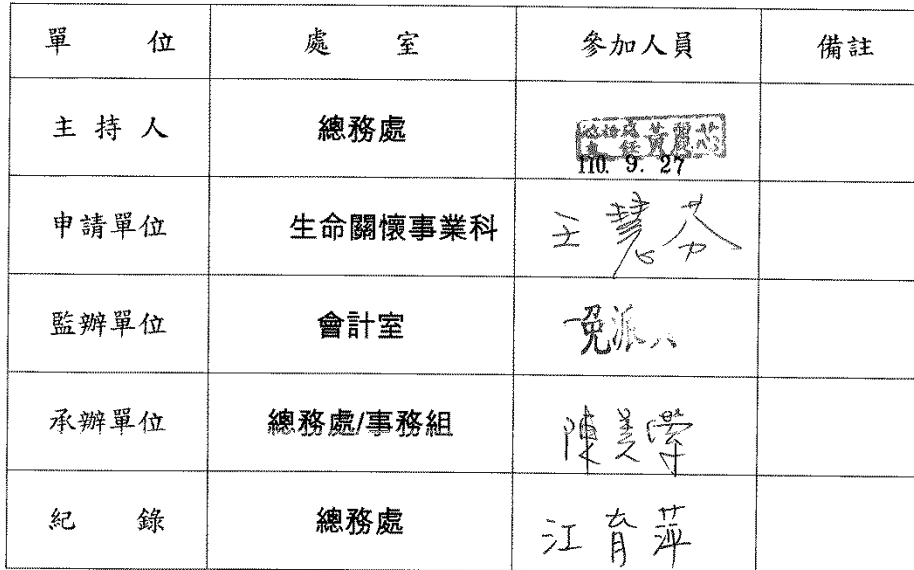 單 位 處 室 參加人員 備註
主 持 人 總務處 總務處主任 黃麗芯
110. 9. 27
申請單位 生命關懷事業科 王慧芬
監辦單位 會計室 免派人
承辦單位 總務處/事務組 陳美
紀 錄 總務處 江育萍